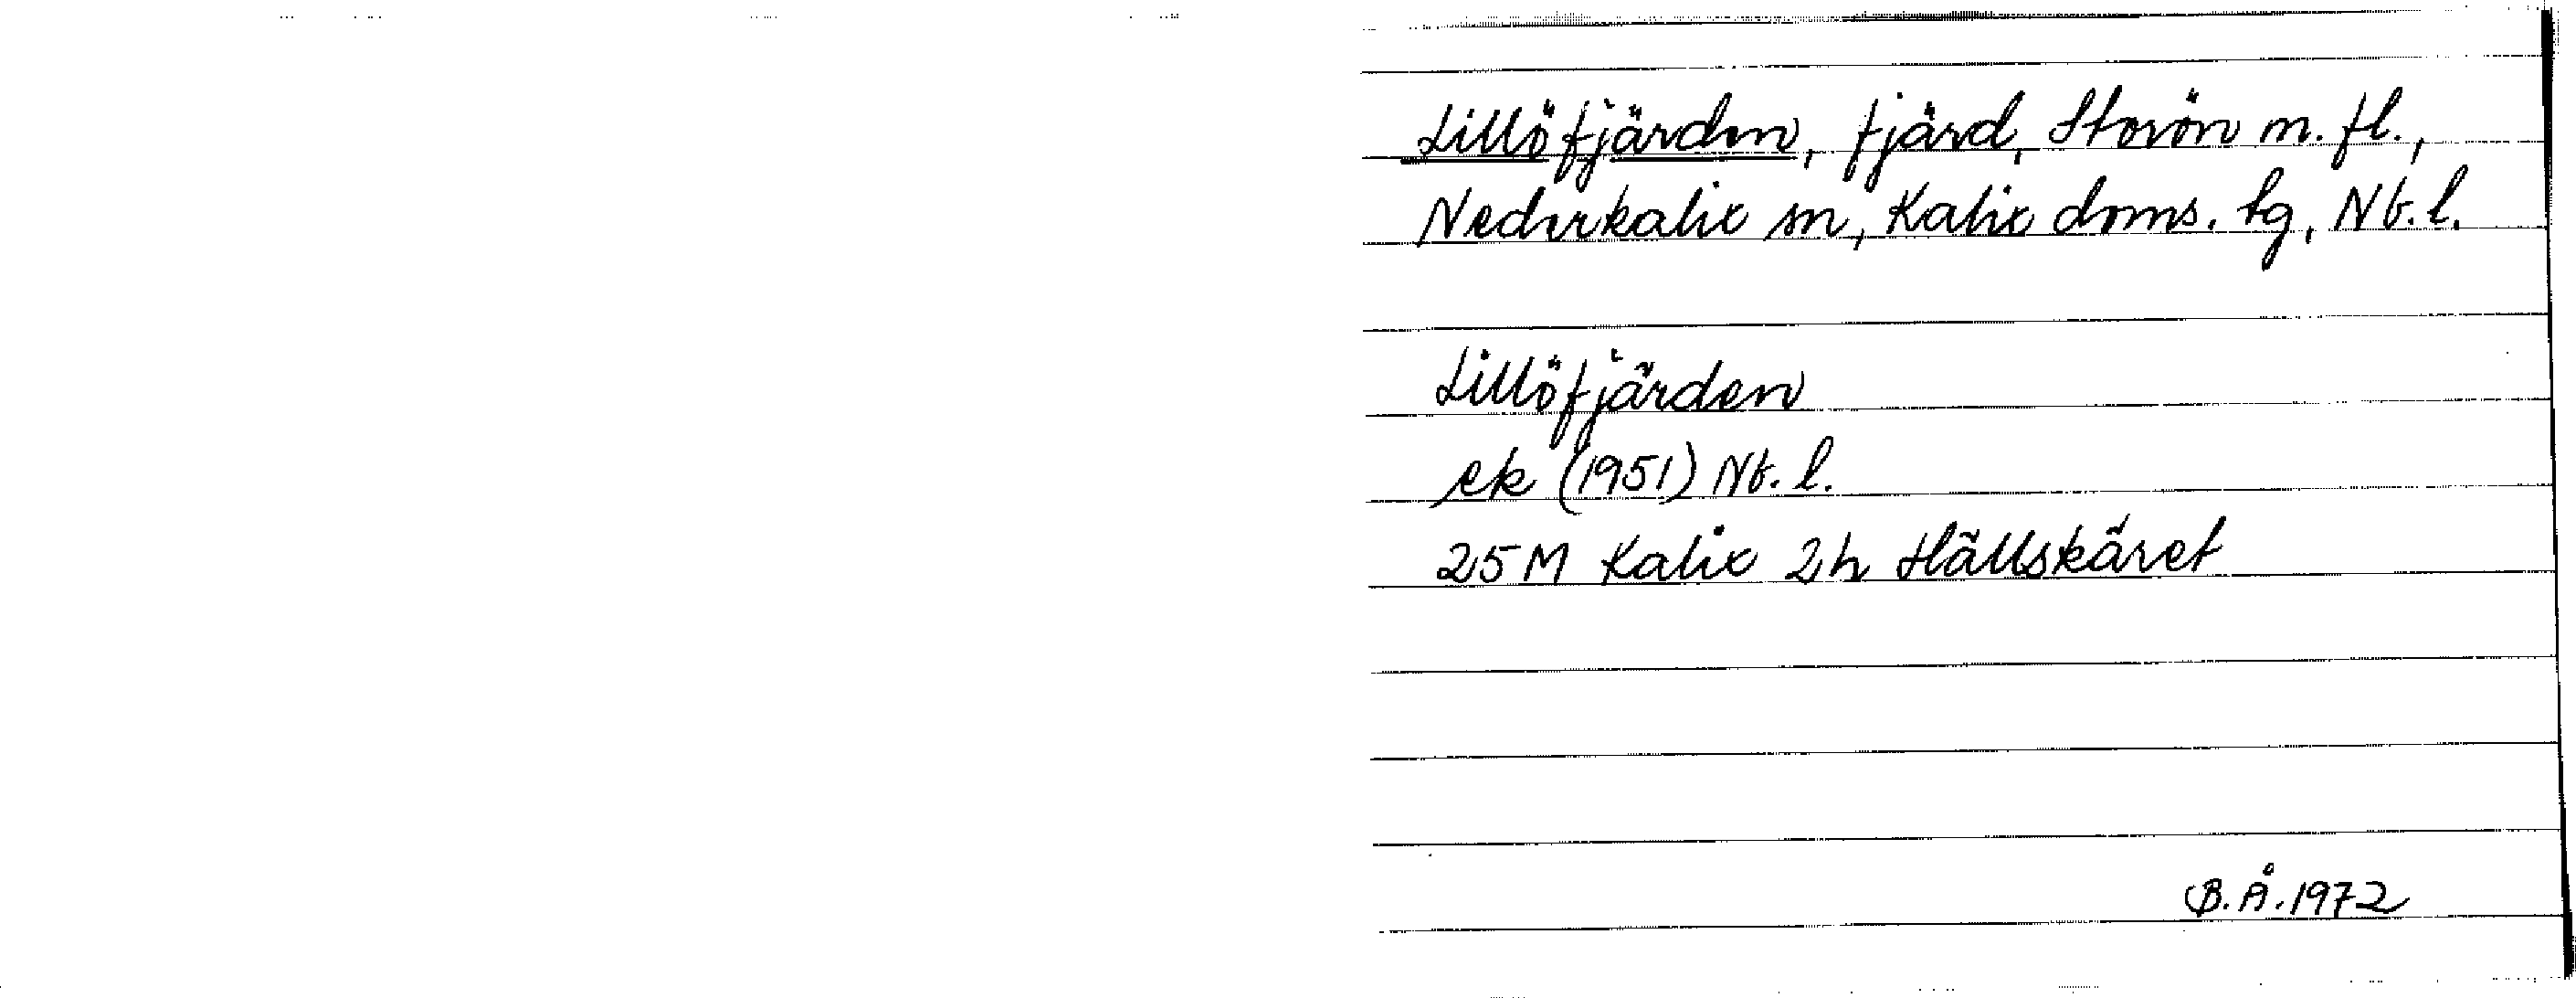 Lillöfjärden, fjärd, Storön m. fl.,
Nederkalix sn, Kalix doms. tg, Nb. l.
Lillöfjärden
ek (1951) Nb. l.
25M Kalix 2h Hällskäret
B. Å. 1972